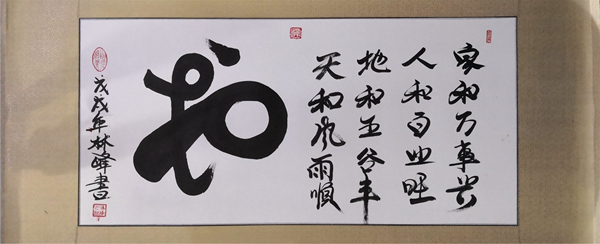 家和万事兴
人和百业旺
地和五谷丰
天和风雨顺
和
戊戌年林峰書